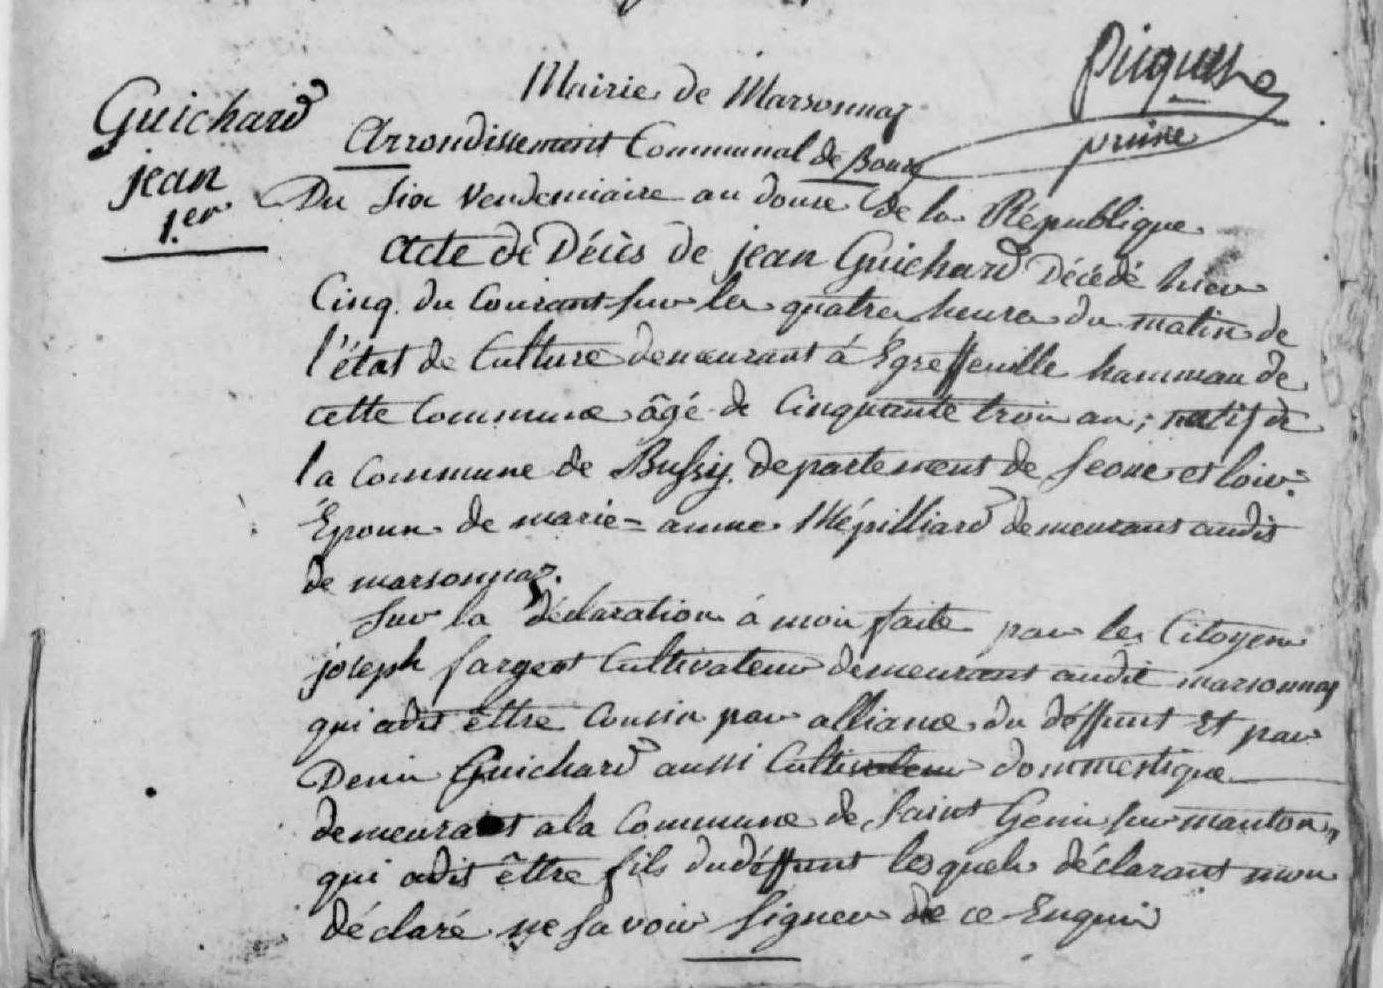 Guichard
jean
1.er
Mairie de Marsonnas
Arrondissement Communal de Bourg
Du six Vendemiaire an douze de la République
Acte de Décès de jean Guichard Décédé hier
Cinq du Courant sur les quatre heures du matin de
l'état de Culture demeurant á Egreffeuille hammau de
cette Commune âgé de Cinquante trois ans; natif de
la Commune de Bussy departement de Seone et loir=
Epoux de marie=anne Répilliard demeurant audit
de marsonnas.
Sur la déclaration á moi faite par les Citoyens
joseph fargeot Cultivateur demeurant audit marsonnas
qui a dit êttre Cousin par alliance du déffunt Et par
Denis Guichard aussi Cultivateur dommestique
demeurant a la Commune de Saint Genis sur manton
qui a dit êttre fils du déffunt lesquels déclarants mon
déclaré ne savoir Signer de ce Enquis